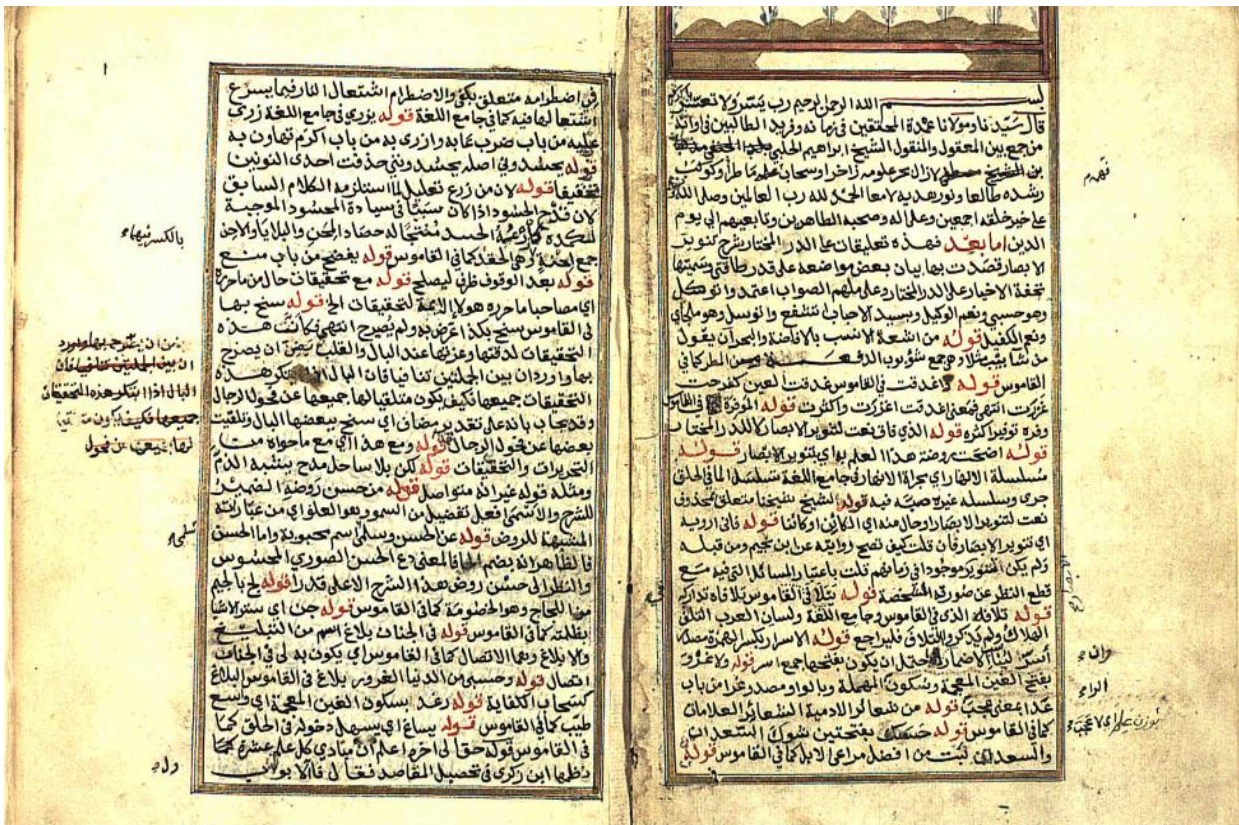 بسم الله الرحمن الرحيم رب يسر ولا تعسر
قال سيدنا ومولانا عمدة المحققين في زمانه وفريد الطالبين في اوانه
من جمع بين المعقول والمنقول الشيخ ابراهيم الحلبي
بن الشيخ لازال بحر علومه زاخرا وسحاب ماطرا وكوكب
رشده طالعا ونور هديه لامعا الحمد لله رب العالمين وصلى الله
على خير خلقه اجمعين وعلى اله وصحبه الطاهرين وتابعيهم الى يوم
الدين اما بعد فهذه تعليقات على الدر المختار شرح تنوير
الابصار قصدت بها بيان بعض مواضعه على قدر طاقتي وسميتها
تحفة الاخيار على الدر المختار وعلى ملهم الصواب اعتمد واتوكل
وهو حسبي ونعم الوكيل وبسيد الاحباب نتشفع واتوسل وهو ملجاي
ونعم الكفيل قوله من اشعة الانسب بالافاضة والبحر ان يقول
من شآبيب مثلا وهي جمع شؤبوب الدفعة من المطر كما في
القاموس قوله اغدقت في القاموس غدقت العين كفرحت
غزرت انتهى فمعنى اغدقت اغزرت واكثرت قوله الموفرة في القاموس
وفره توفيرا كثره قوله الذي فاق نعت لتنوير الابصار لا للدر المختار
قوله اضحت روضة هذا العلم به اي بتنوير الابصار قوله
مسلسلة الانهار اي مجراة الانهار في جامع اللغة تسلسل الما في الحلق
جرى وسلسله غيره صبه فيه قوله الشيخ شيخنا متعلق بمحذوف
نعت لتنوير الابصار او حال منه اي الكاين او كائنا قوله فاني ارويه
اي تنوير الابصار فان قلت كيف تصح روايته عن ابن نجيم ومن قبله
ولم يكن التنوير موجودا في زمانهم قلت باعتبار المسائل التي فيه مع
قطع النظر عن صورته المشخصة قوله بتلافي القاموس تلافاه تداركه
قوله تلافه الذي في القاموس وجامع اللغة ولسان العرب التلف
الهلاك ولم يذكروا التلاف فليراجع قوله الاسرار بكسر الهمزة مصدر
أسر الاضمار احتمل ان يكون بفتحها جمع سر قوله ولا غرو
بفتح الغين المعجمة وسكون المهملة وبالواو مصدر غرا من باب
عدا بمعنى عجب قوله من شعائر الادمية الشعائر العلامات
كما في القاموس قوله حسك بفتحتين شوك السعدان
والسعدان نبت من افضل مراعي الابل كما في القاموس قوله
فهدم
وافاء
الراء
في اضطرامه متعلق بكفى والاضطرام اشتعال النار فيما يسرع
اشتعالها فيه كما في جامع اللغة قوله يزري في جامع اللغة زرى
عليه من باب ضرب عابه وازرى به من باب اكرم تهاون به
قوله يحسدوني اصله يحسدونني حذفت احدى النونين
تخفيفا قوله لان من زرع تعليل لما استلزمه الكلام السابق
لان قدح الحسود اذا كان سببا في سيادة المحسود الموجبة
لحمده كان الحسد منتجا له حصاد المحن والبلايا والاحن
جمع احنة وهي الحقد كما في القاموس قوله يفضح من باب منع
قوله بعد الوقوف ظرف ليصلح قوله مع تحقيقات حال من ما حرره
اي مصاحبا ما حرره هولاء الائمة لتحقيقات الخ قوله سنح بها
في القاموس سنح بكذا عرض به ولم يصرح انتهى فكانت هذه
التحقيقات لدقتها وعزتها عند البال والقلب ان يصرح
بها واورد ان بين الجملتين تنافيا فان البال اذا ابتكر هذه
التحقيقات جميعها فكيف يكون متلقيا لها جميعها عن فحول الرجال
وقد يجاب بانه على تقدير مضاف اي سنح ببعضها البال وتلقيت
بعضها عن فحول الرجال قوله ومع هذا اي مع ما حواه من
التحريرات والتحقيقات قوله لكن بلا ساحل مدح بشبه الذم
ومثله قوله غير انه متواصل قوله من حسن روضه الضمير
للشرح والاسمى افعل تفضيل من السمو وهو العلو اي من عباراته
المشبهة للروض قوله عن الحسن وسلمى اسم محبوبة واما الحسن
فالظاهر انه بضم الحا فالمعنى دع الحسن الصوري المحسوس
وانظر الى حسن روض هذا الشرح الاعلى قدرا قوله لج بالجيم
من اللجاج وهو الخصومة كما في القاموس قوله جن اي ستر الاشيا
بظلمته كما في القاموس قوله في الجنات بلاغ اسم من التبليغ
والابلاغ وهما الاتصال كما في القاموس اي يكون به لي في الجنات
اتصال قوله وحسبي من الدنيا الغرور بلاغ في القاموس البلاغ
كسحاب الكفاية قوله رغد بسكون الغين المعجمة اي واسع
طيب كما في القاموس قوله يساغ اي يسهل دخوله في الحلق كما
في القاموس قوله حقا الى اخره اعلم ان مبادي كل علم عشرة كما
نظمها ابن زكري في تحصيل المقاصد فقال فالا بواب
بالكسر فيهاء
ان بين الجملتين تنافيا فان
البال اذا ابتكر هذه التحقيقات
جميعها فكيف يكون متلقيا
لها جميعها عن فحول
سلمى